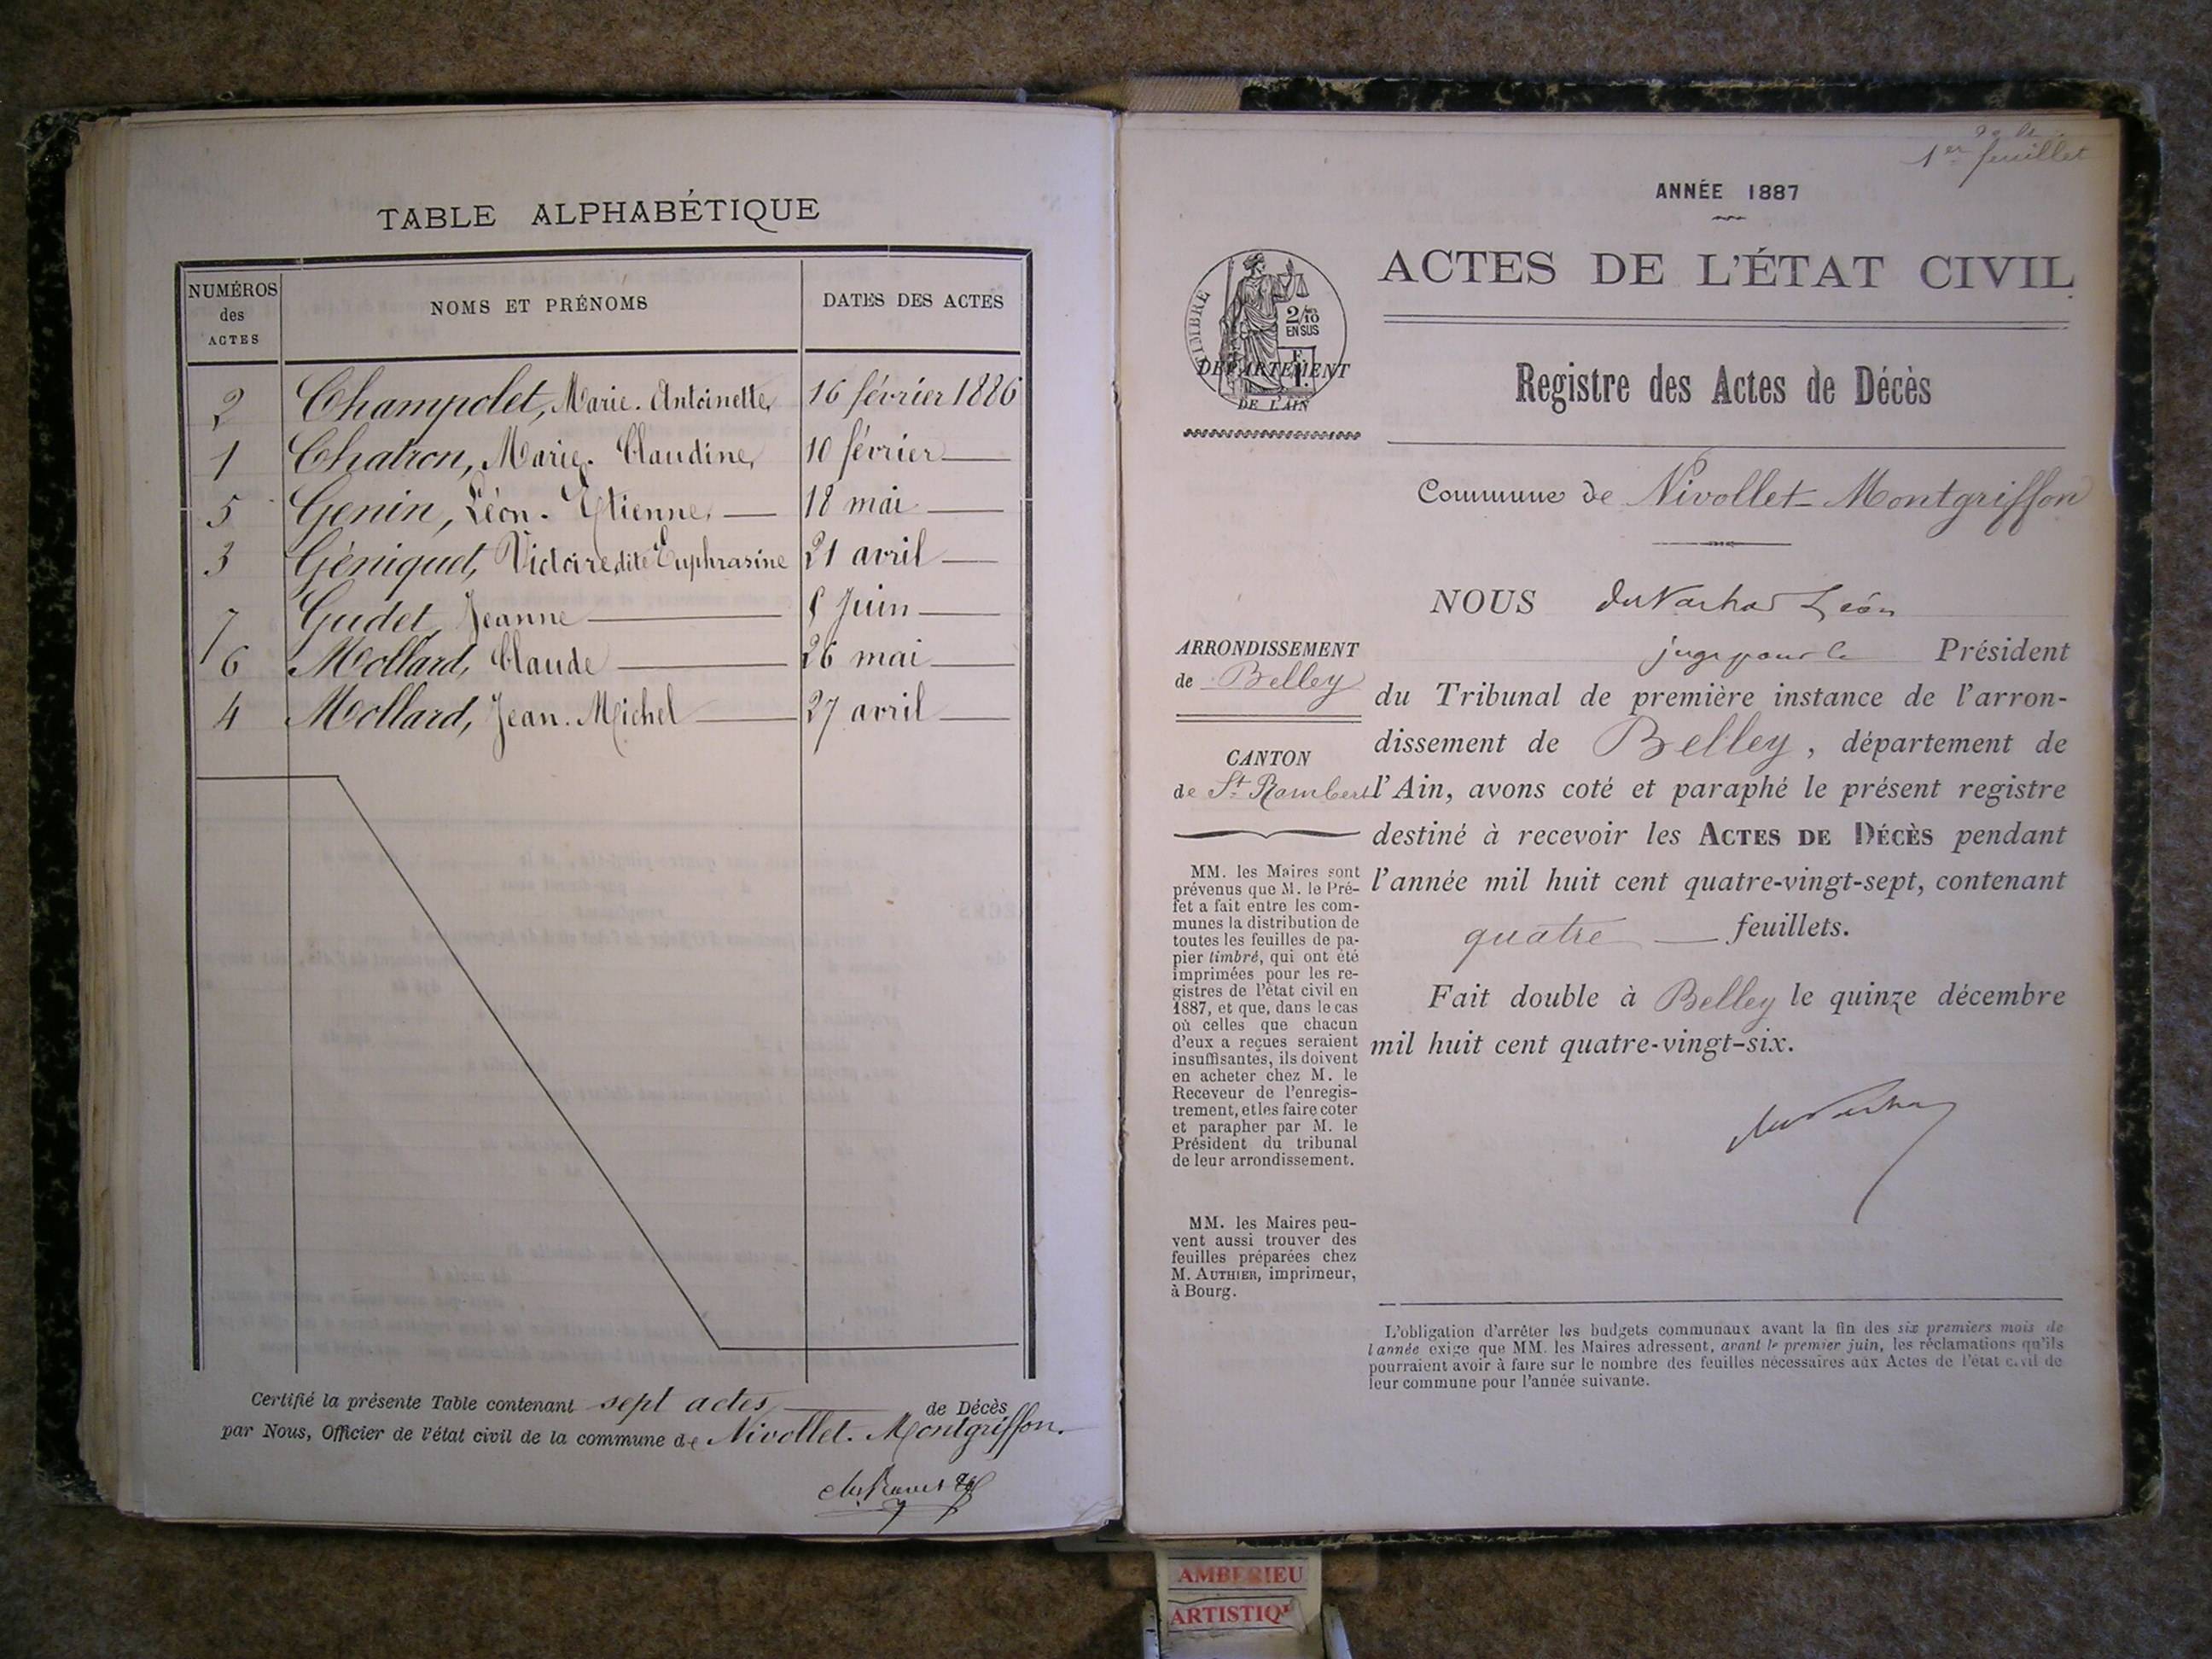 TABLE ALPHABÉTIQUE
NUMÉROS des ACTES NOMS ET PRÉNOMS DATES DES ACTES
2 Champolet, Marie-Antoinette, 16 février 1886
1 Chatron, Marie-Claudine, 10 février
5 Genin, Léon-Etienne, 18 mai
3 Géniquet, Victoire dite Euphrasine 21 avril
7 Gudet, Jeanne Juin
6 Mollard, Claude 26 mai
4 Mollard, Jean-Michel 27 avril
Certifié la présente Table contenant sept actes de Décès
par Nous, Officier de l'état civil de la commune de Nivollet-Montgriffon.
1er feuillet
ANNÉE 1887
ACTES DE L'ÉTAT CIVIL
TIMBRE
2/10
EN SUS
DÉPARTEMENT
DE L'AIN
Registre des Actes de Décès
Commune de Nivollet-Montgriffon
NOUS Léon
juge pour le Président
du Tribunal de première instance de l'arron-
dissement de Belley, département de
l'Ain, avons coté et paraphé le présent registre
destiné à recevoir les ACTES DE DÉCÈS pendant
l'année mil huit cent quatre-vingt-sept, contenant
quatre feuillets.
Fait double à Belley le quinze décembre
mil huit cent quatre-vingt-six.
ARRONDISSEMENT
de Belley
CANTON
de St Rambert
MM. les Maires sont
prévenus que M. le Pré-
fet a fait entre les com-
munes la distribution de
toutes les feuilles de pa-
pier timbré, qui ont été
imprimées pour les re-
gistres de l'état civil en
1887, et que, dans le cas
où celles que chacun
d'eux a reçues seraient
insuffisantes, ils doivent
en acheter chez M. le
Receveur de l'enregis-
trement, et les faire coter
et parapher par M. le
Président du tribunal
de leur arrondissement.
MM. les Maires peu-
vent aussi trouver des
feuilles préparées chez
M. AUTHIER, imprimeur,
à Bourg.
L'obligation d'arrêter les budgets communaux avant la fin des six premiers mois de
l'année exige que MM. les Maires adressent, avant le premier juin, les réclamations qu'ils
pourraient avoir à faire sur le nombre des feuilles nécessaires aux Actes de l'état civil de
leur commune pour l'année suivante.
AMBERIEU
ARTISTIQU